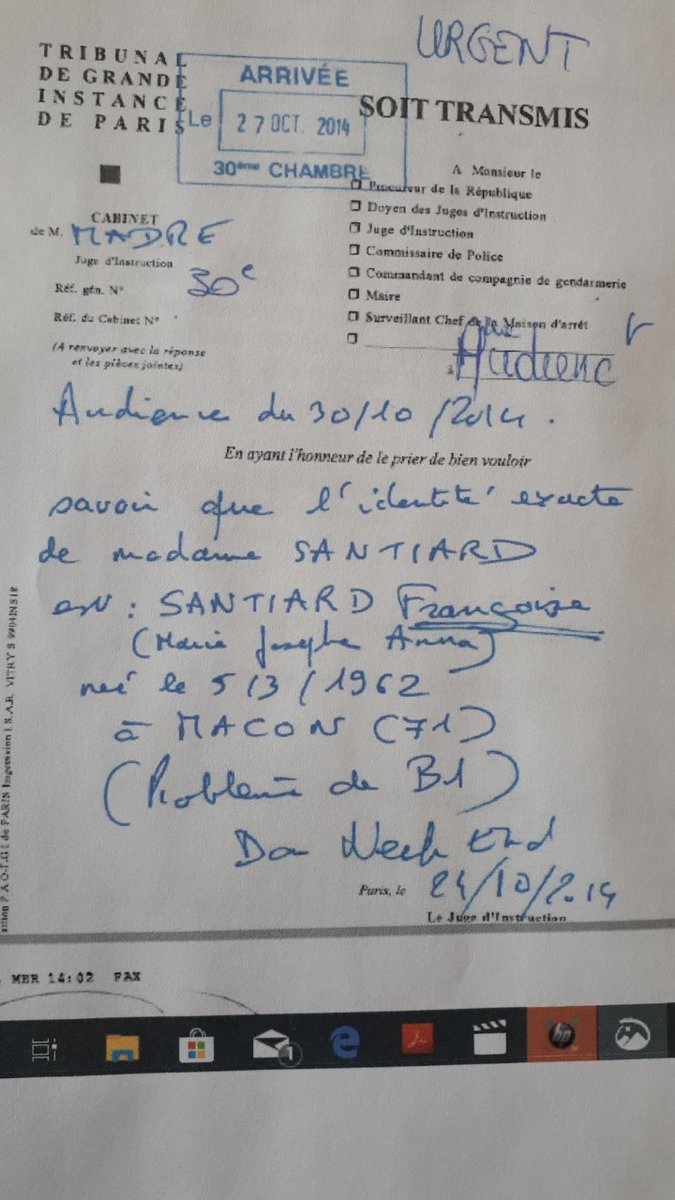 URGENT
TRIBUNAL
DE GRANDE
INSTANCE
DE PARIS
ARRIVÉE
Le 27 OCT. 2014
30ème CHAMBRE
SOIT TRANSMIS
A Monsieur le
Procureur de la République
Doyen des Juges d'Instruction
Juge d'Instruction
Commissaire de Police
Commandant de compagnie de gendarmerie
Maire
Surveillant Chef de la Maison d'arrêt
CABINET
de M. MADRE
Juge d'Instruction
30e
Réf. gén. N°
Réf. du Cabinet N°
(A renvoyer avec la réponse
et les pièces jointes)
à
Audienc
Audience du 30/10/2014.
En ayant l'honneur de le prier de bien vouloir
savoir que l'identité exacte
de madame SANTIARD
est : SANTIARD Françoise
(Marie Josephe Anna)
née le 5/3/1962
à MACON (71)
(Problème de B1)
Bon Week End
Paris, le 24/10/2014
Le Juge d'Instruction
MER 14:02 FAX
1
hp